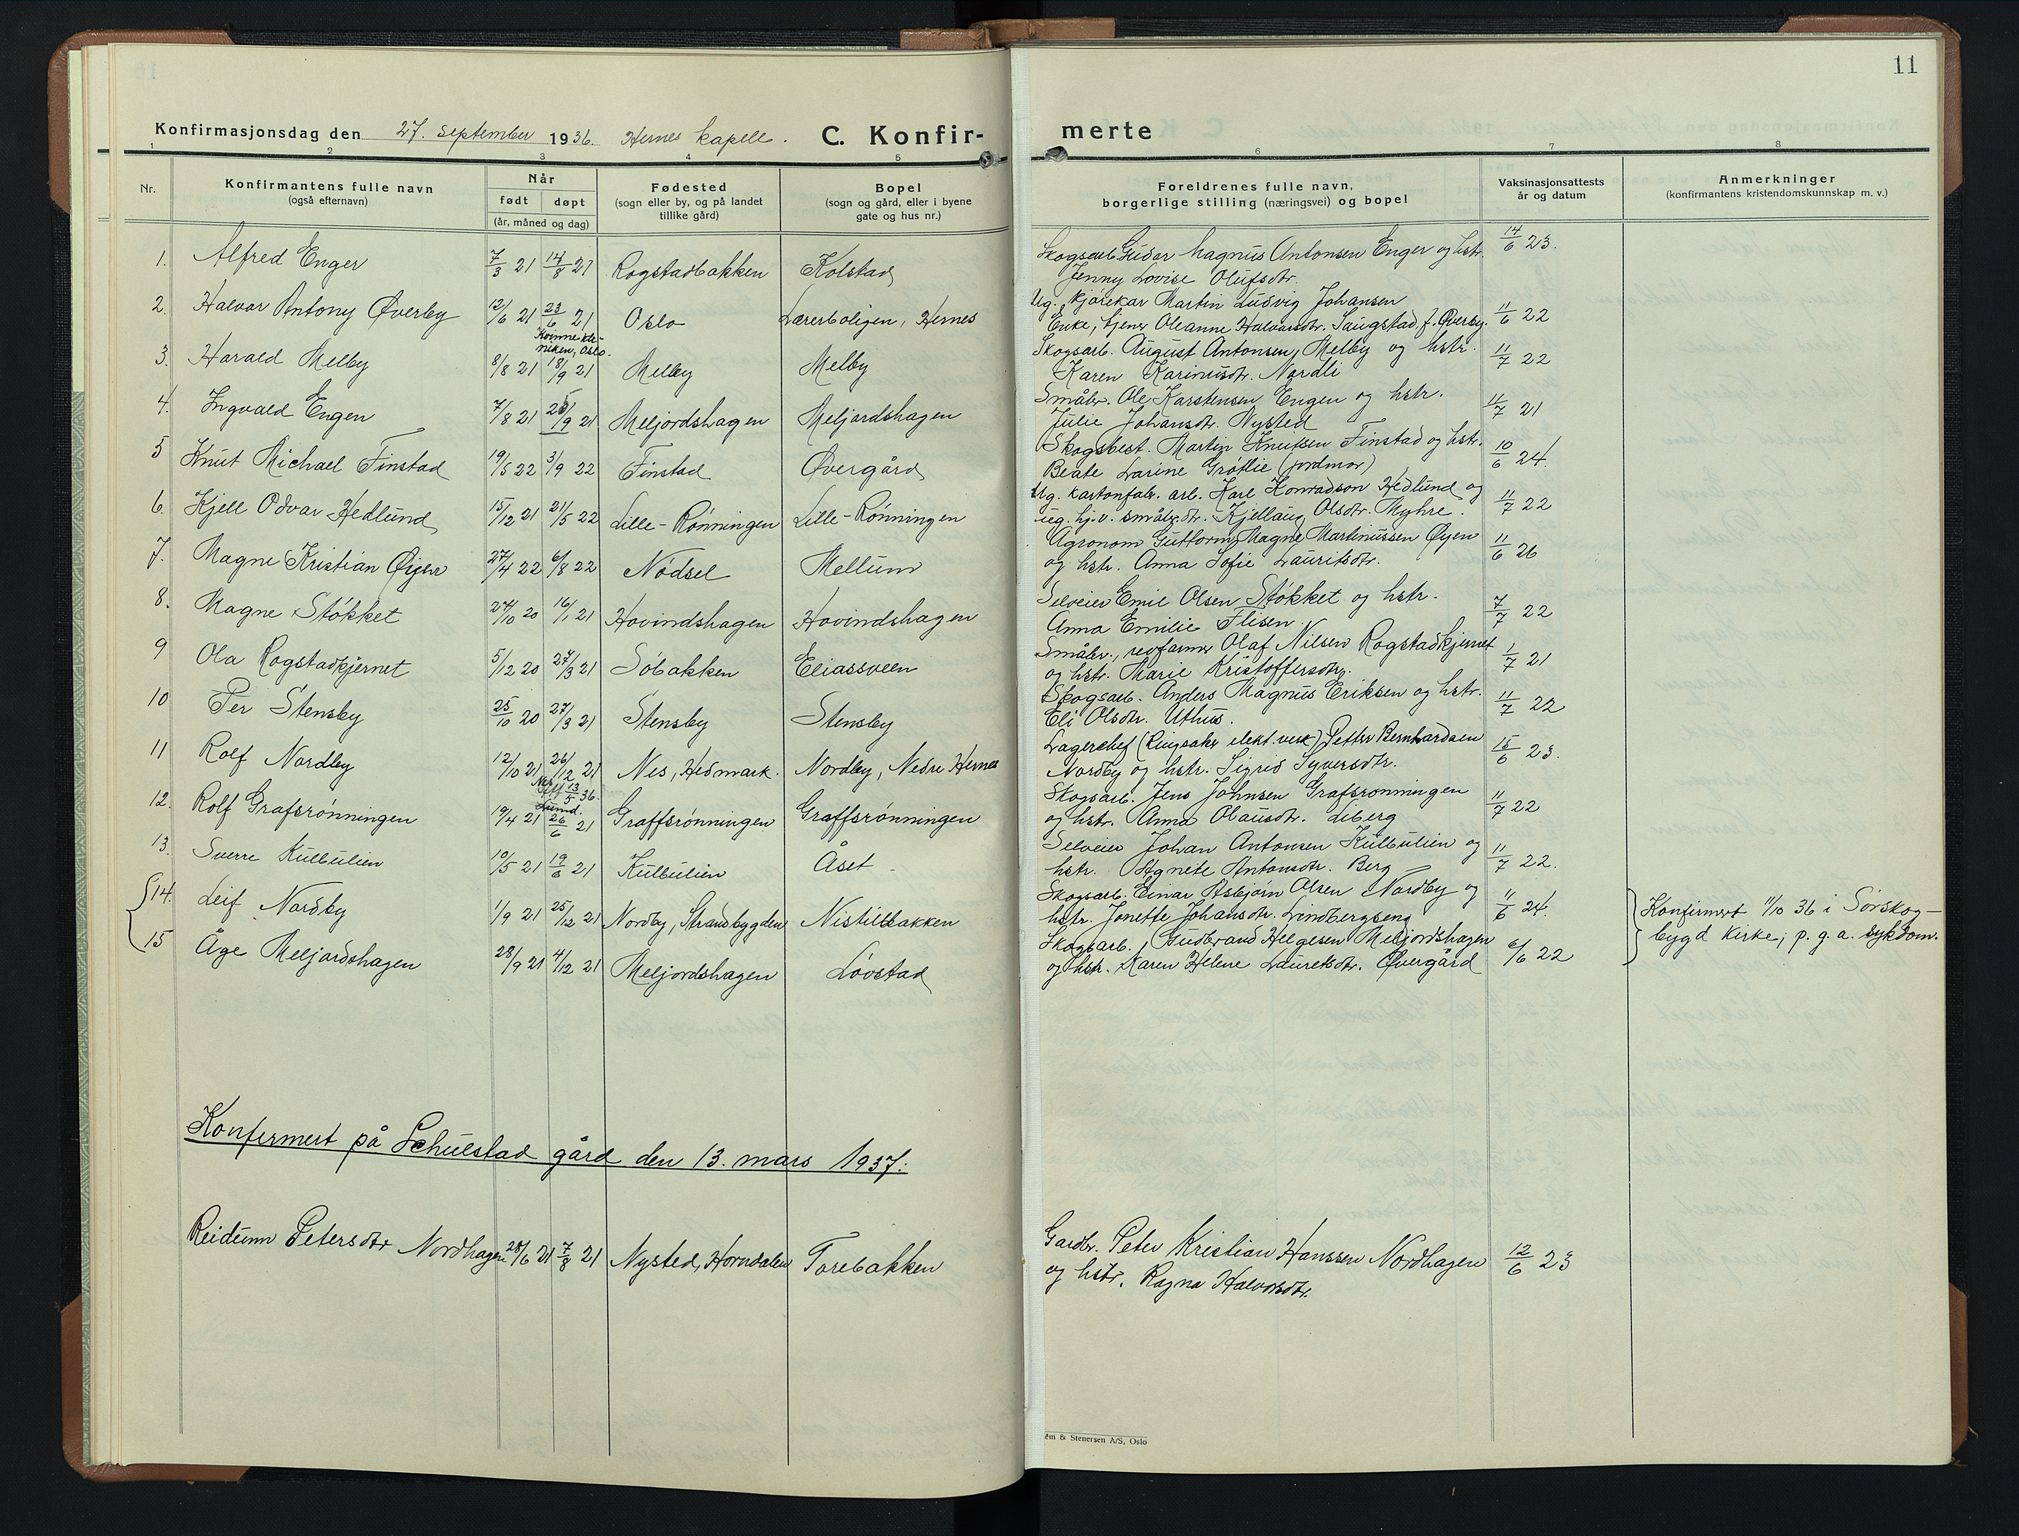 11
Konfirmasjonsdag den 27. september 1936. Hernes kapell. C. Konfir- merte
1 2 3 4 5 6 7 8
Nr. Konfirmantens fulle navn (også efternavn) Når født døpt (år, måned og dag) Fødested (sogn eller by, og på landet tillike gård) Bopel (sogn og gård, eller i byene gate og hus nr.) Foreldrenes fulle navn, borgerlige stilling (næringsvei) og bopel Vaksinasjonsattests år og datum Anmerkninger (konfirmantens kristendomskunnskap m. v.)
1. Alfred Enger 7/3 21 14/8 21 Rogstadbakken Kolstad Skogsarb. Gudar Magnus Antonsen Enger og hstr. 14/6 23.
Jenny Lovise Olufsdtr.
2. Halvar Antony Øverby 12/6 21 23/6 21 Oslo Lærerboligen, Hernes Ug. kjørekar Martin Ludvig Johansen 11/6 22
Kvinnekliniken, Oslo. Enke, tjener Oleanne Halvorsdtr. Saugstad, f. Øverby.
3. Harald Melby 8/8 21 18/9 21 Melby Melby Skogsarb. August Antonsen Melby og hstr. 11/7 22
Karen Karinusdtr. Nordli
4. Ingvald Engen 7/8 21 25/9 21 Meljordshagen Meljordshagen Småbr. Ole Karstensen Engen og hstr. 11/7 21
Julie Johansdtr. Nysted
5 Knut Michael Finstad 19/5 22 3/9 22 Finstad Øvergård Skogsbest. Martin Knutsen Finstad og hstr. 10/6 24.
Beate Larine Grøtlie (jordmor)
6. Kjell Odvar Hedlund 15/12 21 21/5 22 Lille-Rønningen Lille-Rønningen Ug. kartonfabr. arb. Karl Konradson Hedlund og 11/7 22
ug. hj. v. småbrdtr. Kjellaug Olsdtr. Myhre.
7. Magne Kristian Øyen 27/4 22 6/8 22 Nødsel Mellum Agronom Guttorm Magne Martinussen Øyen 11/6 26
og hstr. Anna Sofie Lauritsdtr.
8. Magne Støkket 24/10 20 16/1 21 Hovindshagen Hovindshagen Selveier Emil Olsen Støkket og hstr. 7/7 22
Anna Emilie Flisen.
9 Ola Rogstadkjernet 5/12 20 27/3 21 Søbakken Eliassveen Småbr., revfarmer Olaf Nilsen Rogstadkjernet 1/7 21
og hstr. Marie Kristoffersdtr.
10 Per Stensby 25/10 20 27/3 21 Stensby Stensby Skogsarb. Anders Magnus Eriksen og hstr. 11/7 22
Eli Olsdtr. Uthus.
11 Rolf Nordby 12/10 21 26/12 21 Nes, Hedmark. Nordby, Nedre Hernes Lagerchef (Ringsaker elekt. verk) Petter Bernhardsen 15/6 23.
13/5 36. Nordby og hstr. Sigrid Syversdtr.
12. Rolf Grafsrønningen 19/4 21 26/6 21 Graffsrønningen Graffsrønningen Skogsarb. Jens Johnsen Grafsrønningen 11/7 22
og hstr. Anna Olausdtr. Liberg
13. Sverre Kulbulien 10/5 21 19/6 21 Kulbulien Åset Selveier Johan Antonsen Kulbulien og 11/7 22.
hstr. Agnete Antonsdtr. Berg
14. Leif Nordby 1/9 21 25/12 21 Nordby, Strandbygden Nistilbakken Skogsarb. Einar Asbjørn Olsen Nordby og 11/6 24. Konfirmert 11/10 36 i Sørskog-
hstr. Jonette Johansdtr. Lindbergseng bygd kirke, p. g. a. sykdom.
15 Åge Meljordshagen 28/9 21 4/12 21 Meljordshagen Løvstad Skogsarb. Gudbrand Helgesen Meljordshagen 6/6 22
og hstr. Karen Helene Lauritsdtr. Øvergård
Konfirmert på Schulstad gård den 13. mars 1937.
Reidunn Petersdtr Nordhagen 28/6 21 7/8 21 Nysted, Horndalen Torebakken Gardbr. Peter Kristian Hanssen Nordhagen 12/6 23
og hstr. Ragna Halvorsdtr.
& Stenersen A/S, Oslo